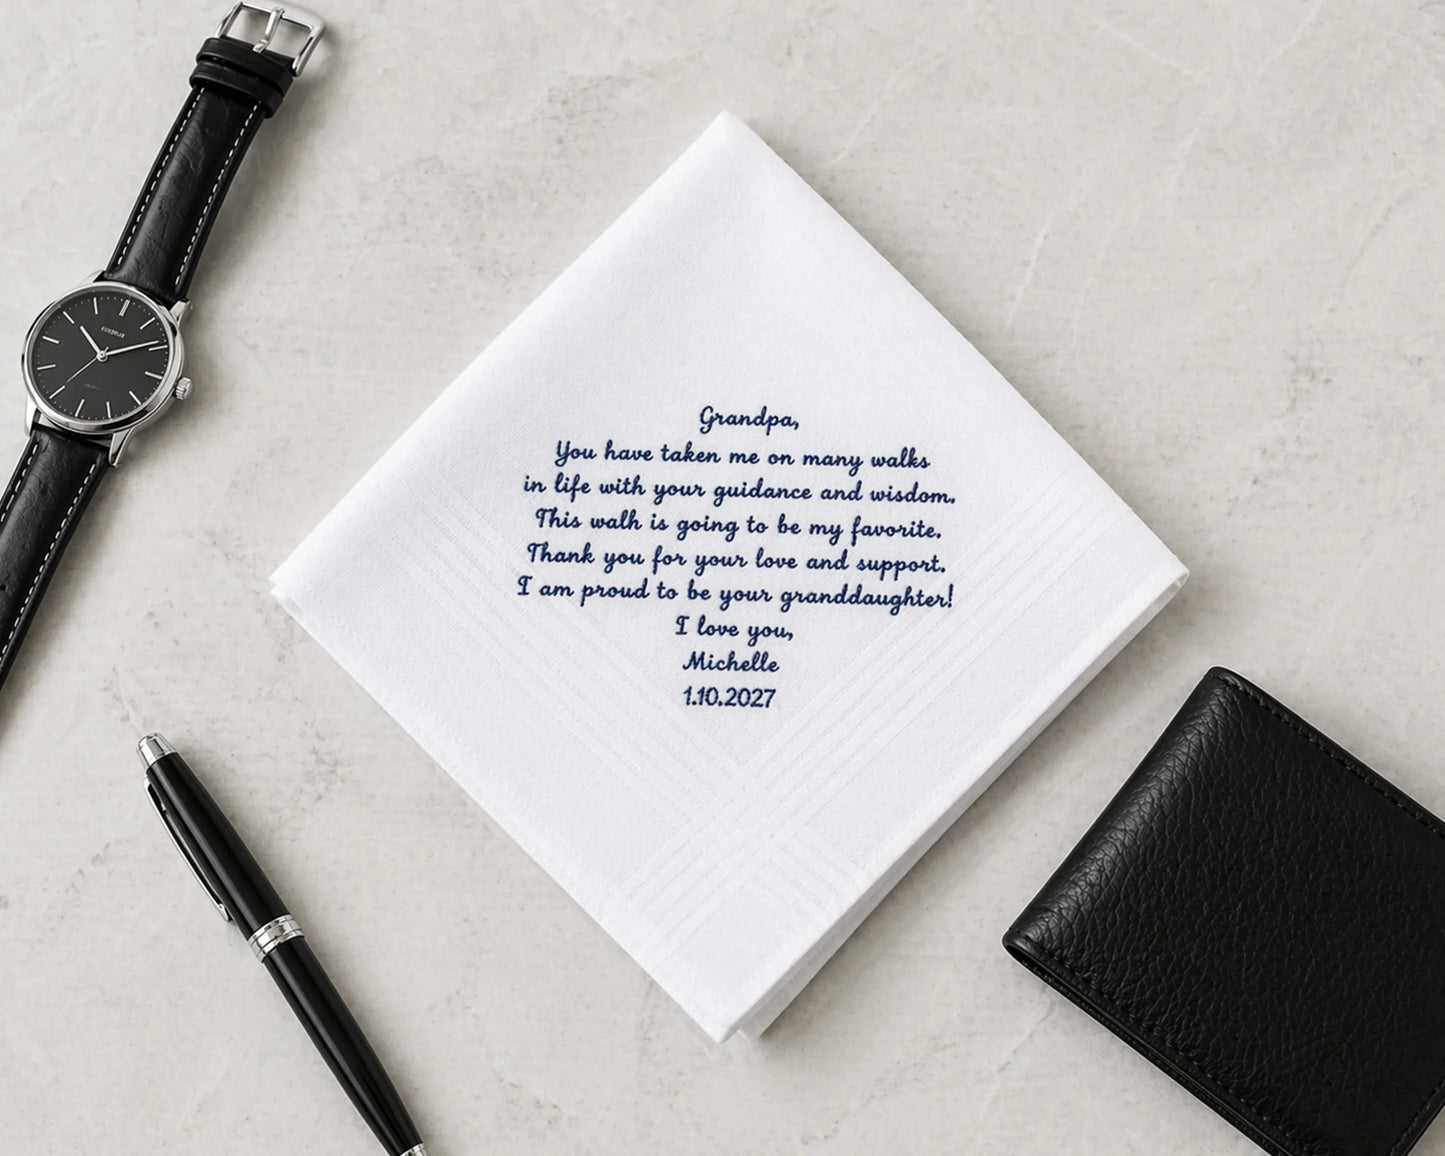 Grandpa,
You have taken me on many walks
in life with your guidance and wisdom.
This walk is going to be my favorite.
Thank you for your love and support.
I am proud to be your granddaughter!
I love you,
Michelle
1.10.2027